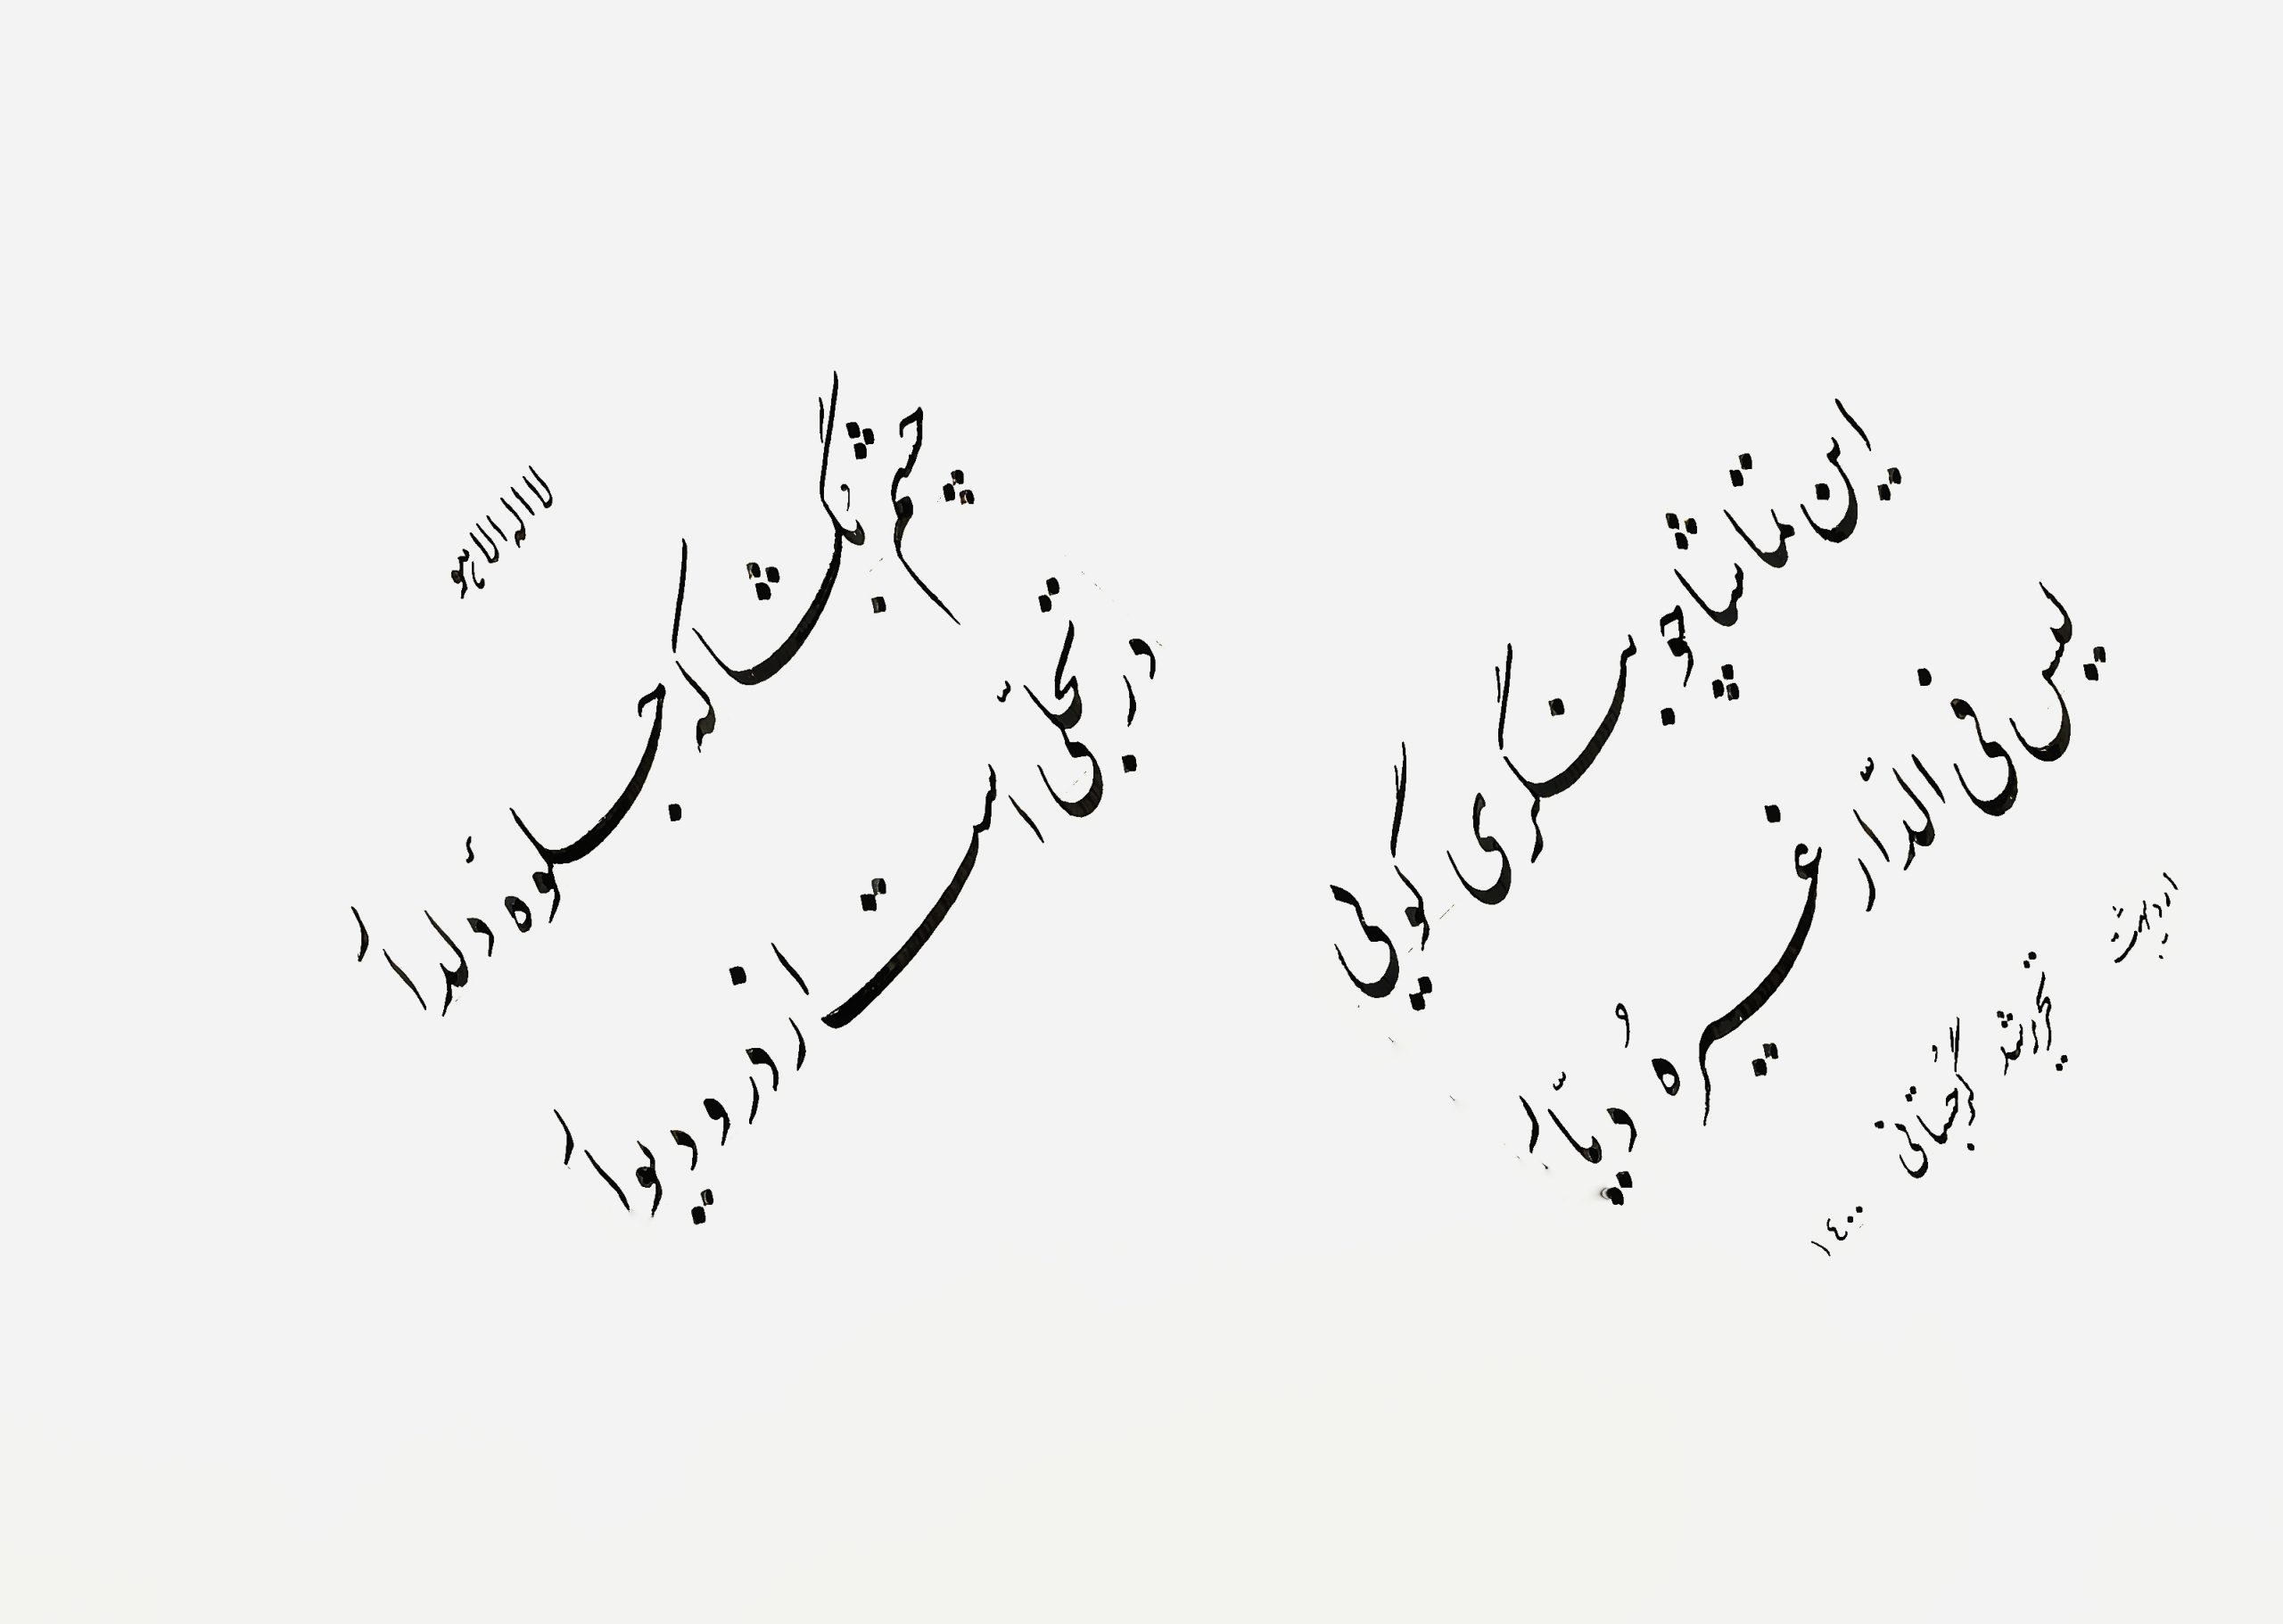 لا اله الا
چشم بگشا که جلوهٔ دلدار
در تجلّی است از در و دیوار
این تماشا چو بنگری گویی
لیس فی الدّار غیره دیّار
اردیبهشت
تحریر شد
۱۴۰۰